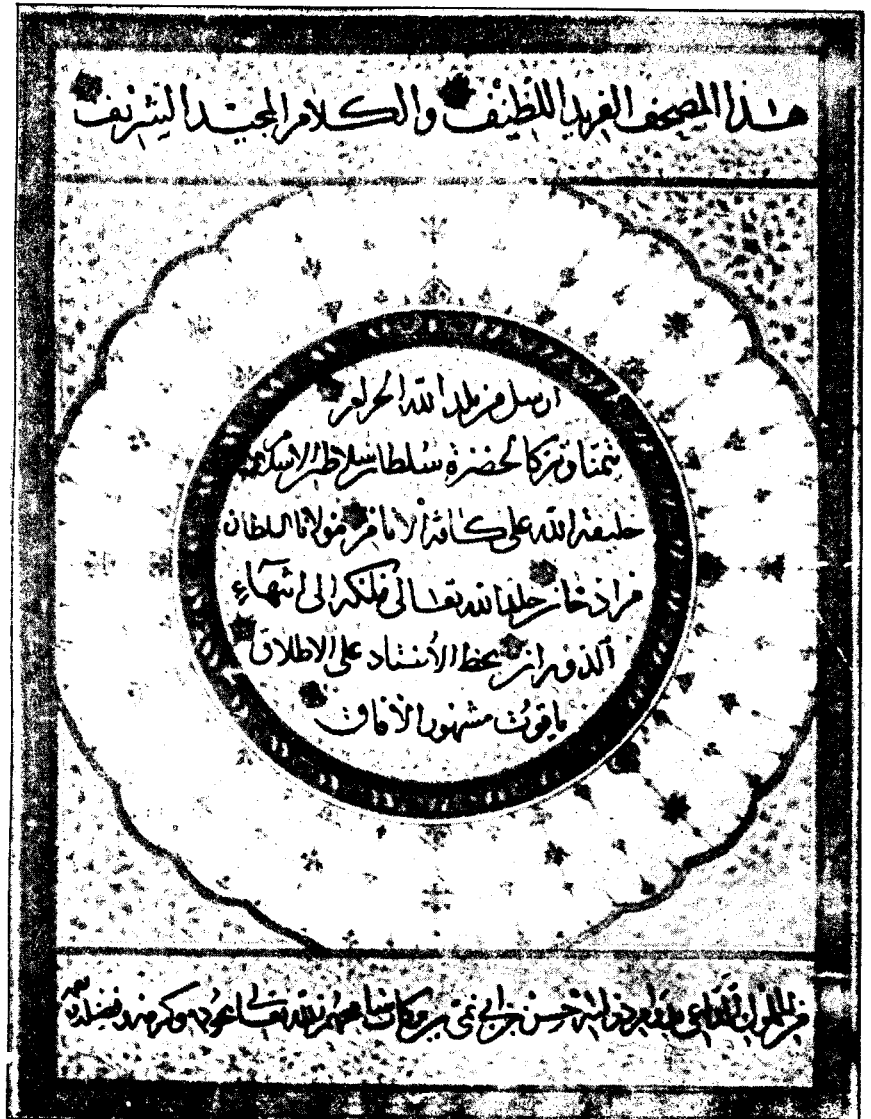 هذا المصحف الفريد اللطيف والكلام المجيد الشريف
ارسل من بلد الله الحرام
تيمنا وتبركا لحضرة سلطان سلاطين الاسلام
خليفة الله على كافة الأنام مولانا السلطان
مراد خان خلد الله تعالى ملكه الى انتهاء
الدوران بخط الأستاد على الاطلاق
ياقوت مشهور الآفاق
من المملوك الداعي حسن بن ابي نمي بن بركات الله تعالى بجوده وكرمه